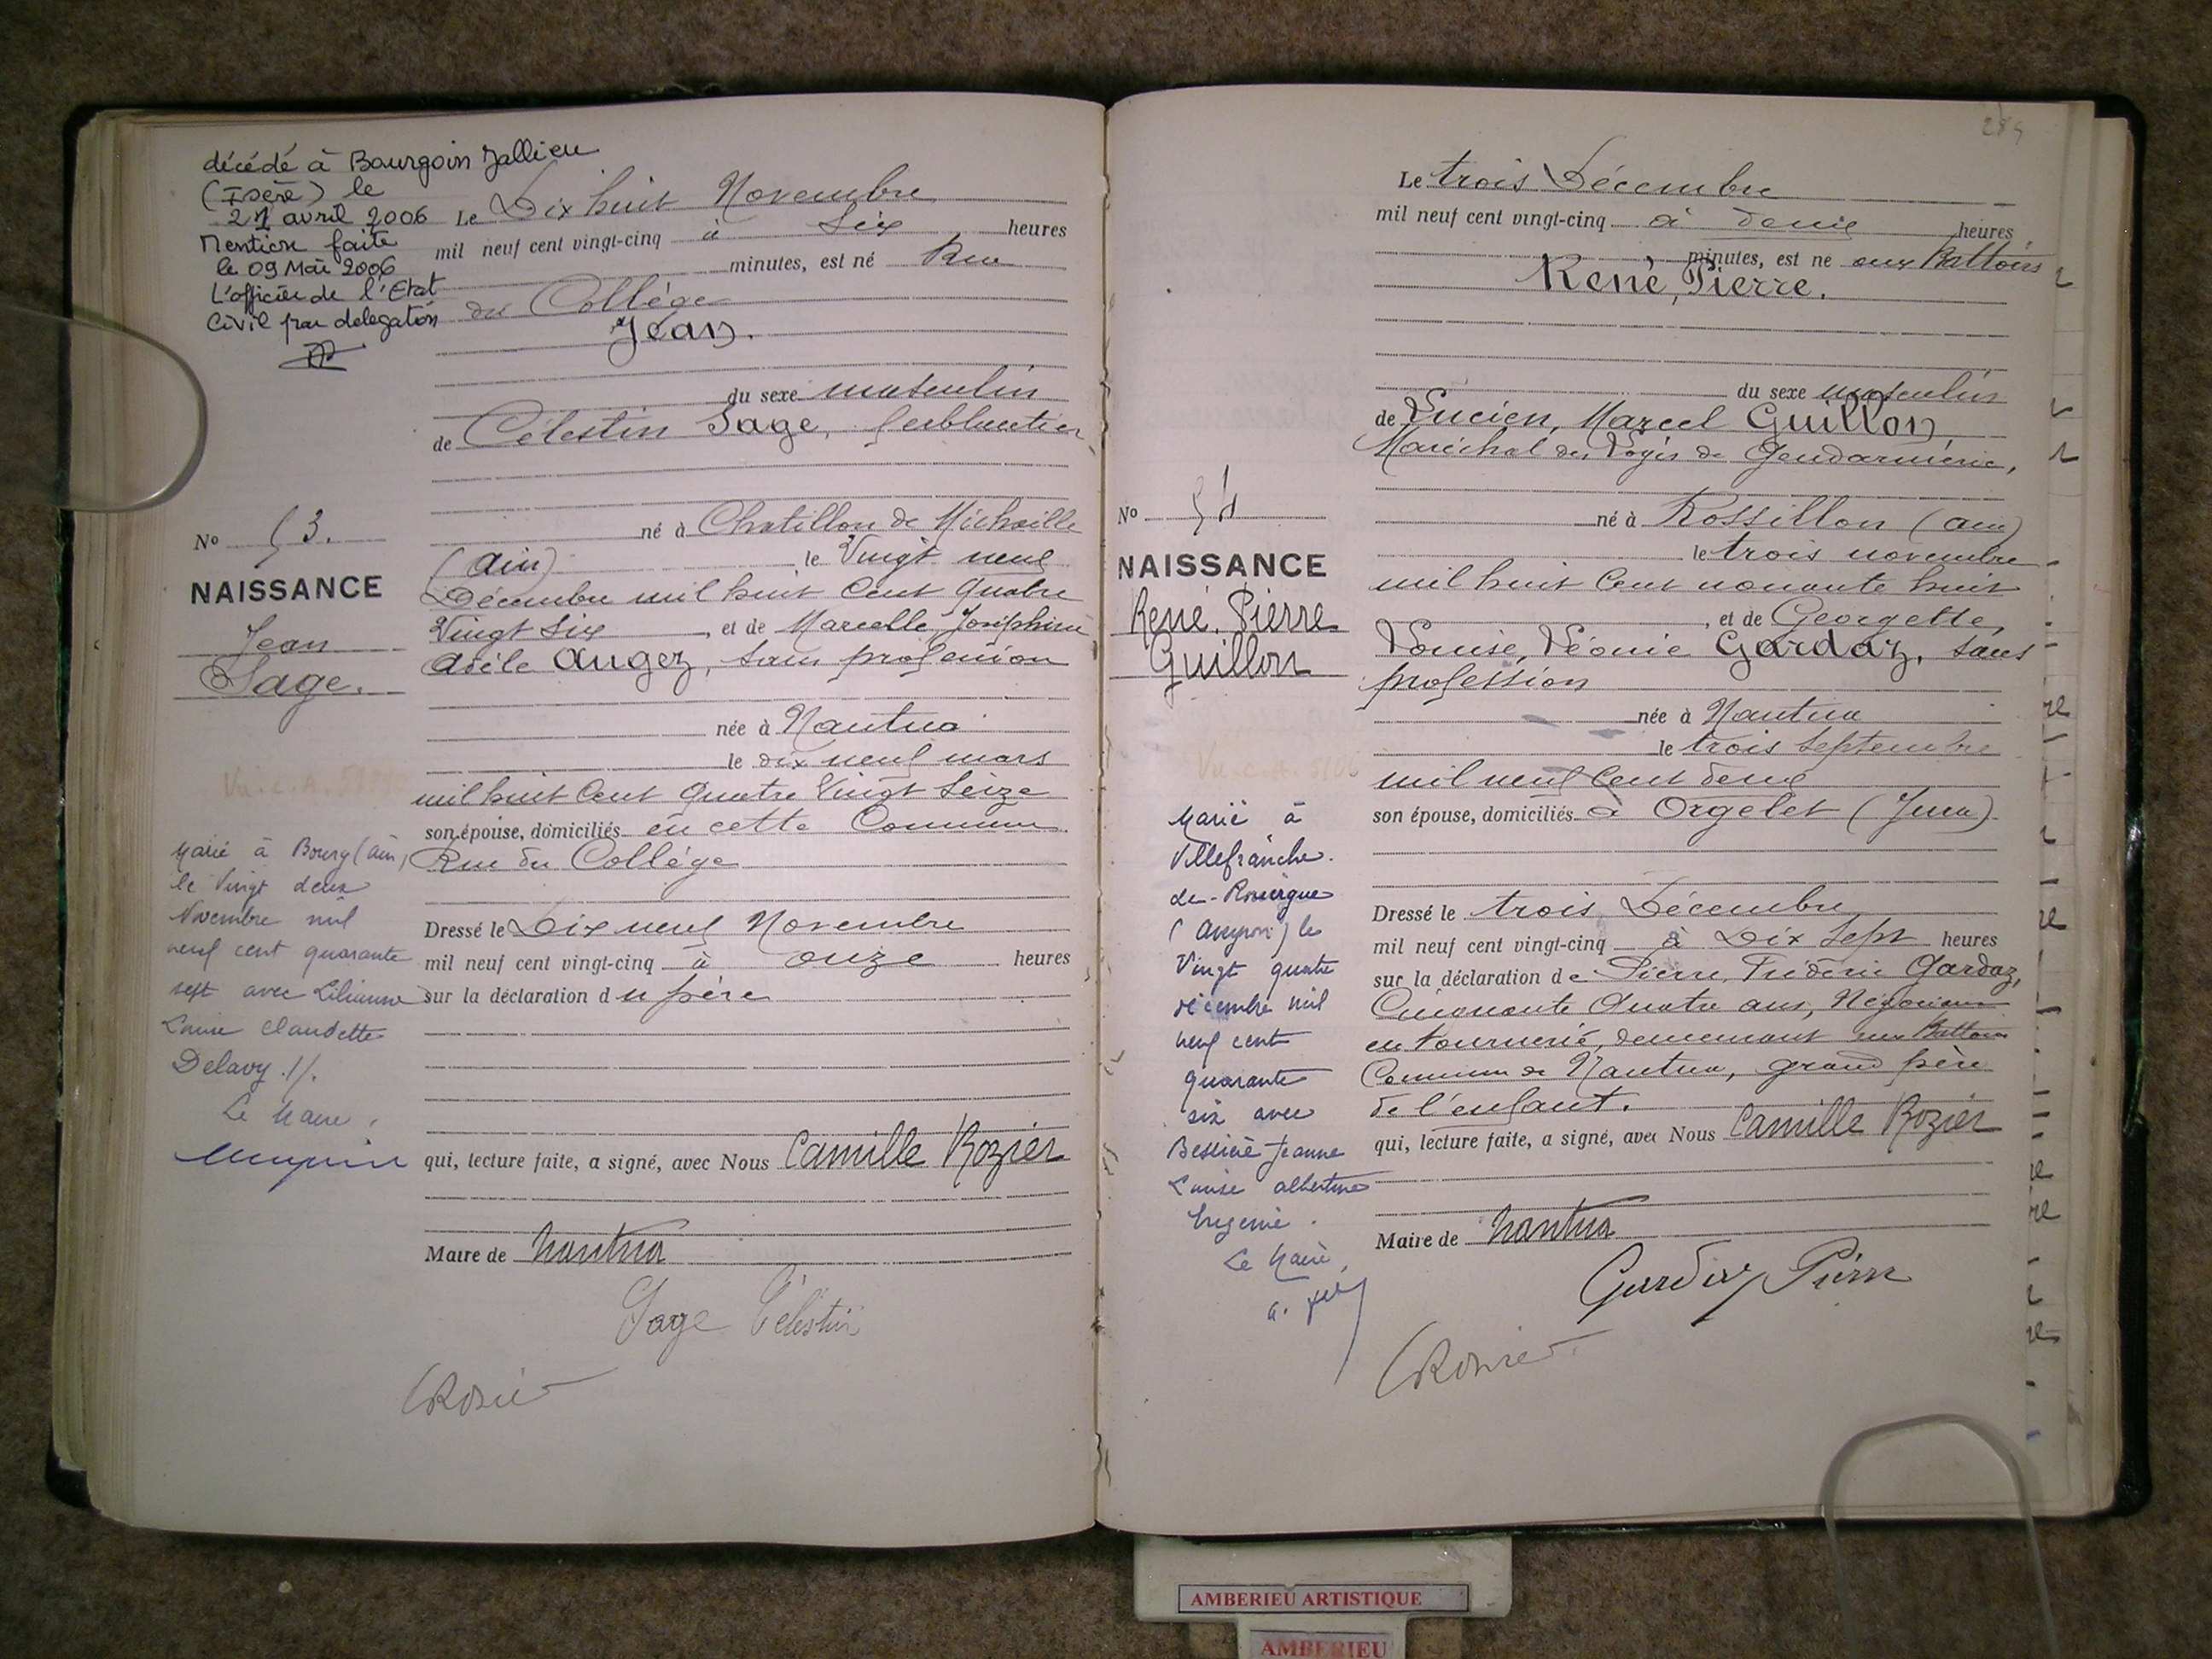 décédé à Bourgoin Jallieu
(Isère) le
21 avril 2006
Mention faite
le 09 Mai 2006
L'officier de l'Etat
Civil par délégation
No 53.
NAISSANCE
Jean
Sage.
Vu. C. A.
Marié à Bourg (Ain)
le Vingt deux
Novembre mil
neuf cent quarante
sept avec Lilianne
Louise Claudette
Delavy ./.
Le Maire,
Le Dix huit Novembre
mil neuf cent vingt-cinq à Six heures
minutes, est né Rue
du Collège
Jean.
du sexe masculin
de Célestin Sage, ferblantier
né à Chatillon de Michaille
(Ain) le Vingt neuf
Décembre mil huit Cent Quatre
Vingt Six, et de Marcelle, Joséphine
Adèle Augez, sans profession
née à Nantua
le dix neuf mars
mil huit Cent Quatre Vingt Seize
son épouse, domiciliés en cette Commune
Rue du Collège
Dressé le Dix neuf Novembre
mil neuf cent vingt-cinq à onze heures
sur la déclaration du père
qui, lecture faite, a signé, avec Nous Camille Rozier
Maire de Nantua
Sage Célestin
CRozier
No 54
NAISSANCE
René, Pierre
Guillon
Vu. C. A.
Marié à
Villefranche
de-Rouergue
(Aveyron) le
Vingt quatre
décembre mil
neuf cent
quarante
six avec
Bessière Jeanne
Louise Albertine
Eugénie.
Le Maire,
284
Le trois Décembre
mil neuf cent vingt-cinq à deux heures
minutes, est né aux Battoirs
René, Pierre.
du sexe masculin
de Lucien, Marcel Guillon,
Maréchal des Logis de Gendarmerie,
né à Rossillon (Ain)
le trois novembre
mil huit Cent nonante huit
, et de Georgette,
Louise, Léonie Gardaz, sans
profession
née à Nantua
le trois Septembre
mil neuf Cent deux
son épouse, domiciliés à Orgelet (Jura)
Dressé le trois Décembre
mil neuf cent vingt-cinq à Dix Sept heures
sur la déclaration de Pierre, Frédéric Gardaz,
Cinquante Quatre ans, Négociant
en tournerie, demeurant aux Battoirs
Commune de Nantua, grand père
de l'enfant.
qui, lecture faite, a signé, avec Nous Camille Rozier
Maire de Nantua
Gardaz Pierre
CRozier
AMBERIEU ARTISTIQUE
AMBERIEU